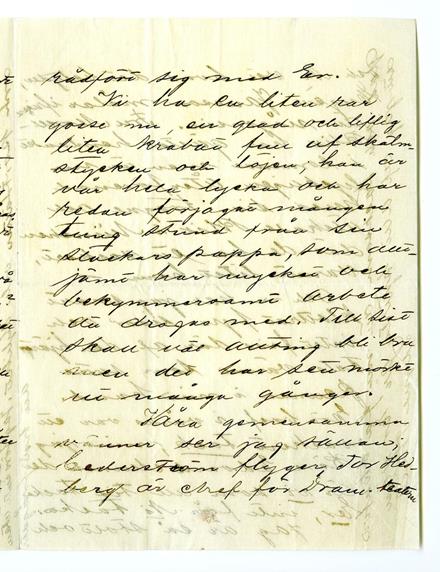 rådfört sig med Er.
Vi ha en liten rar
gosse nu, en glad och liflig
liten krabat full af skälm-
stycken och löjen; han är
vår hela lycka och har
redan förjagat mången
tung stund från sin
stackars pappa, som allt-
jämt har mycket och
bekymmersamt arbete
att dragas med. Till sist
skall väl allting bli bra
men det har sett mörkt
ut många gånger.
Våra gemensamma
vänner ser jag sällan;
Cederström flyger, Tor Hed-
berg är chef för Dram. teatern